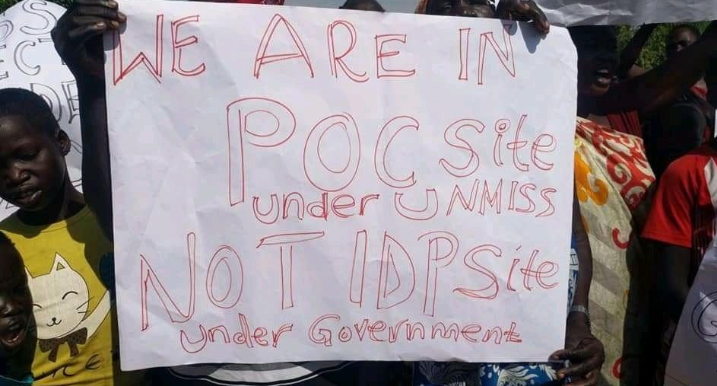 WE ARE IN
POC Site
under UNMISS
NOT IDP Site
under Government